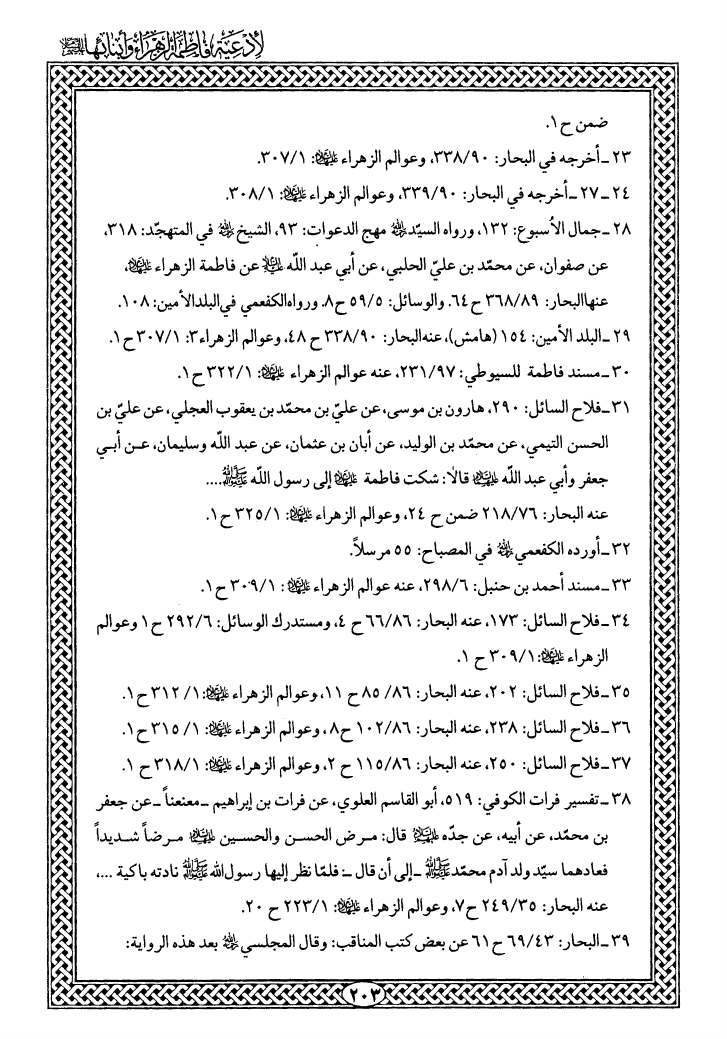 لأدعية فاطمة الزهراء وأبنائها
ضمن ح ١.
٢٣ ـ أخرجه في البحار: ٣٣٨/٩٠، وعوالم الزهراء عليها السلام: ٣٠٧/١.
٢٤ ـ ٢٧ ـ أخرجه في البحار: ٣٣٩/٩٠، وعوالم الزهراء عليها السلام: ٣٠٨/١.
٢٨ ـ جمال الأسبوع: ١٣٢، ورواه السيّد رحمه الله مهج الدعوات: ٩٣، الشيخ رحمه الله في المتهجّد: ٣١٨،
عن صفوان، عن محمّد بن عليّ الحلبي، عن أبي عبد اللّه عليه السلام عن فاطمة الزهراء عليها السلام،
عنها البحار: ٣٦٨/٨٩ ح ٦٤. والوسائل: ٥٩/٥ ح ٨. ورواه الكفعمي في البلد الأمين: ١٠٨.
٢٩ ـ البلد الأمين: ١٥٤ (هامش)، عنه البحار: ٣٣٨/٩٠ ح ٤٨، وعوالم الزهراء٣: ٣٠٧/١ ح ١.
٣٠ ـ مسند فاطمة للسيوطي: ٢٣١/٩٧، عنه عوالم الزهراء عليها السلام: ٣٢٢/١ ح ١.
٣١ ـ فلاح السائل: ٢٩٠، هارون بن موسى، عن عليّ بن محمّد بن يعقوب العجلي، عن عليّ بن
الحسن التيمي، عن محمّد بن الوليد، عن أبان بن عثمان، عن عبد اللّه وسليمان، عـن أبـي
جعفر وأبي عبد اللّه عليهما السلام قالا: شكت فاطمة عليها السلام إلى رسول اللّه صلى الله عليه وآله....
عنه البحار: ٢١٨/٧٦ ضمن ح ٢٤، وعوالم الزهراء عليها السلام: ٣٢٥/١ ح ١.
٣٢ ـ أورده الكفعمي رحمه الله في المصباح: ٥٥ مرسلاً.
٣٣ ـ مسند أحمد بن حنبل: ٢٩٨/٦، عنه عوالم الزهراء عليها السلام: ٣٠٩/١ ح ١.
٣٤ ـ فلاح السائل: ١٧٣، عنه البحار: ٦٦/٨٦ ح ٤، ومستدرك الوسائل: ٢٩٢/٦ ح ١ وعوالم
الزهراء عليها السلام: ٣٠٩/١ ح ١.
٣٥ ـ فلاح السائل: ٢٠٢، عنه البحار: ٨٥/٨٦ ح ١١، وعوالم الزهراء عليها السلام: ٣١٢/١ ح ١.
٣٦ ـ فلاح السائل: ٢٣٨، عنه البحار: ١٠٢/٨٦ ح ٨، وعوالم الزهراء عليها السلام: ٣١٥/١ ح ١.
٣٧ ـ فلاح السائل: ٢٥٠، عنه البحار: ١١٥/٨٦ ح ٢، وعوالم الزهراء عليها السلام: ٣١٨/١ ح ١.
٣٨ ـ تفسير فرات الكوفي: ٥١٩، أبو القاسم العلوي، عن فرات بن إبراهيم ـ معنعناً ـ عن جعفر
بن محمّد، عن أبيه، عن جدّه عليهم السلام قال: مـرض الحسـن والحسـين عليهما السلام مـرضاً شـديداً
فعادهما سيّد ولد آدم محمّد صلى الله عليه وآله ـ إلى أن قال ـ: فلمّا نظر إليها رسول الله صلى الله عليه وآله نادته باكية ...،
عنه البحار: ٢٤٩/٣٥ ح ٧، وعوالم الزهراء عليها السلام: ٢٢٣/١ ح ٢٠.
٣٩ ـ البحار: ٦٩/٤٣ ح ٦١ عن بعض كتب المناقب: وقال المجلسي رحمه الله بعد هذه الرواية:
٢٠٣